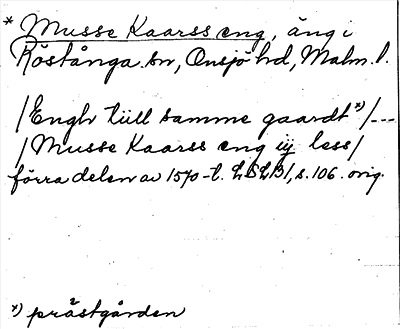 * Musse Kaarss eng, äng i
Röstånga sn, Onsjö hd, Malm. l.
/Engh till samme gaardt *)/---
/Musse Kaarss eng iij less/
förra delen av 1570-t. LSLB1, s. 106. orig.
*) prästgården